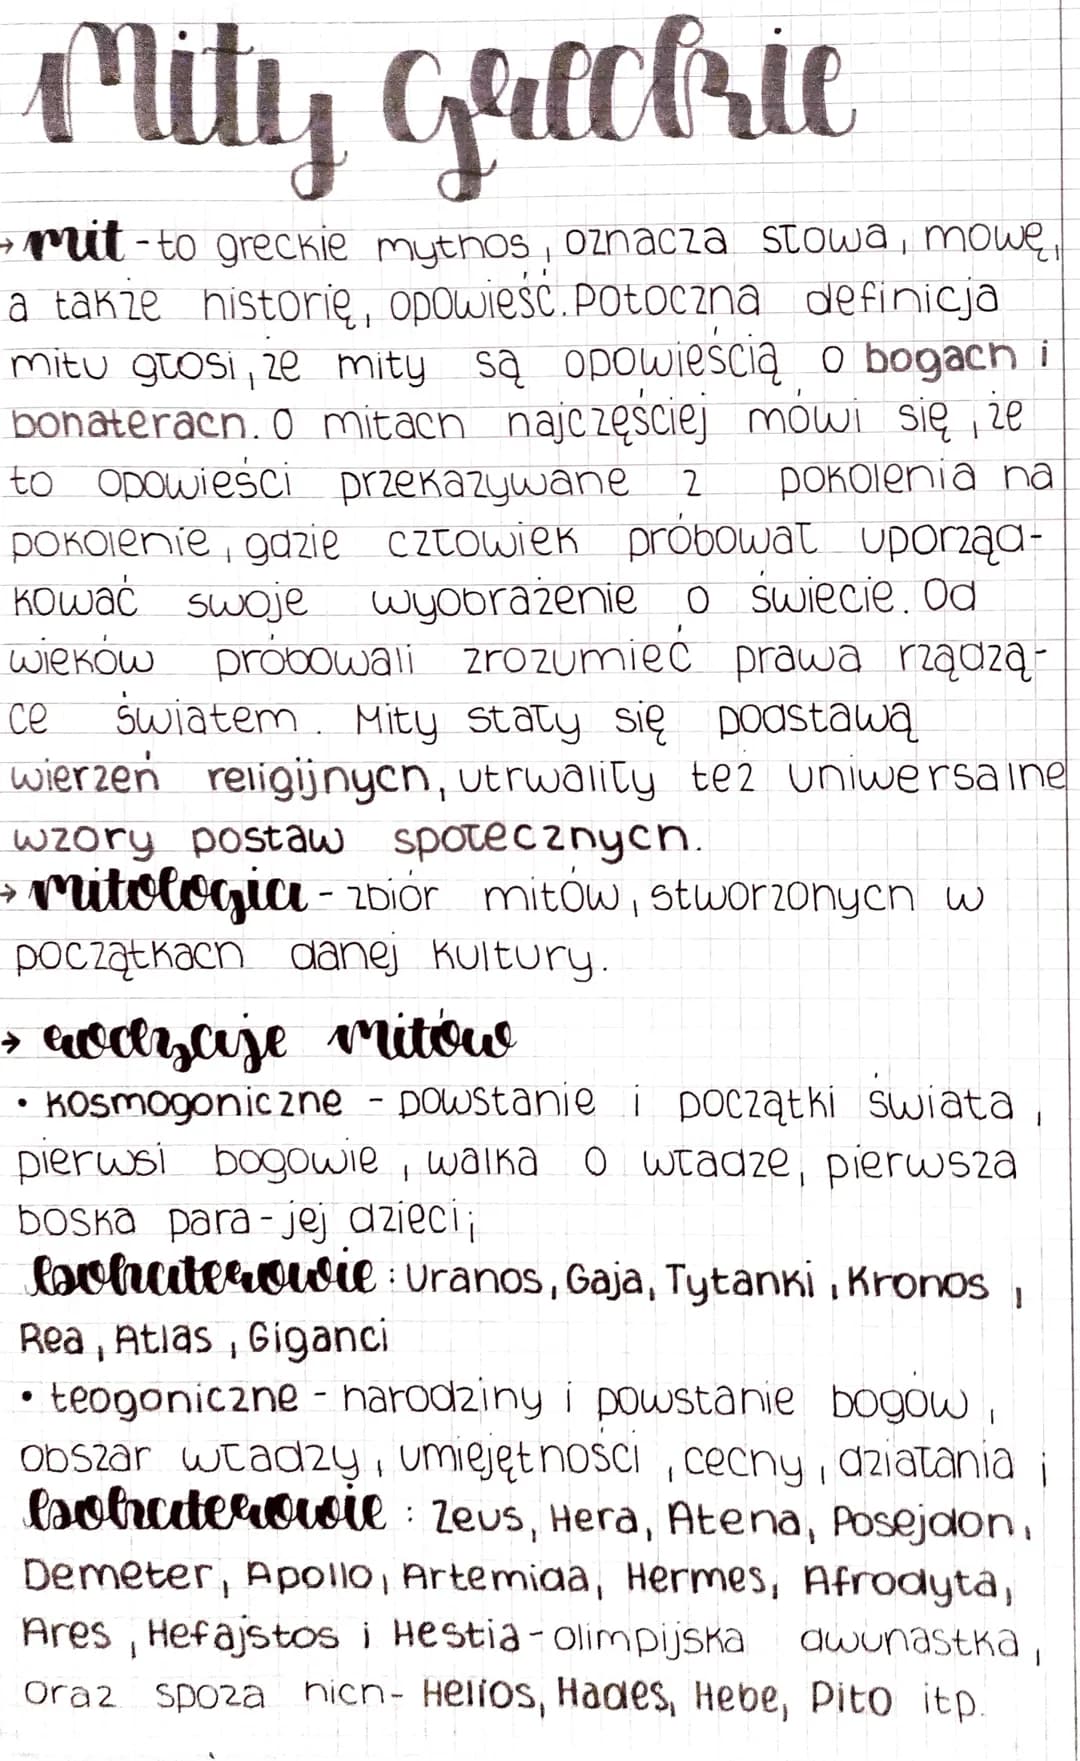 Mity greckie
→ mit - to greckie mythos, oznacza słowa, mowę,
a także historię, opowieść. Potoczna definicja
mitu głosi, że mity są opowieścią o bogach i
bohaterach. O mitach najczęściej mówi się, że
to opowieści przekazywane z pokolenia na
pokolenie, gdzie człowiek próbował uporząd-
kować swoje wyobrażenie o świecie. Od
wieków próbowali zrozumieć prawa rządzą-
ce światem. Mity stały się podstawą
wierzeń religijnych, utrwaliły też uniwersalne
wzory postaw społecznych.
→ mitologia - zbiór mitów, stworzonych w
początkach danej kultury.
→ rodzaje mitów
• kosmogoniczne - powstanie i początki świata,
pierwsi bogowie, walka o władze, pierwsza
boska para - jej dzieci;
bohaterowie: Uranos, Gaja, Tytanki, Kronos,
Rea, Atlas, Giganci
• teogoniczne - narodziny i powstanie bogów,
obszar władzy, umiejętności, cechy, działania;
bohaterowie: Zeus, Hera, Atena, Posejdon,
Demeter, Apollo, Artemida, Hermes, Afrodyta,
Ares, Hefajstos i Hestia - olimpijska dwunastka,
oraz spoza nich - Helios, Hades, Hebe, Pito itp.